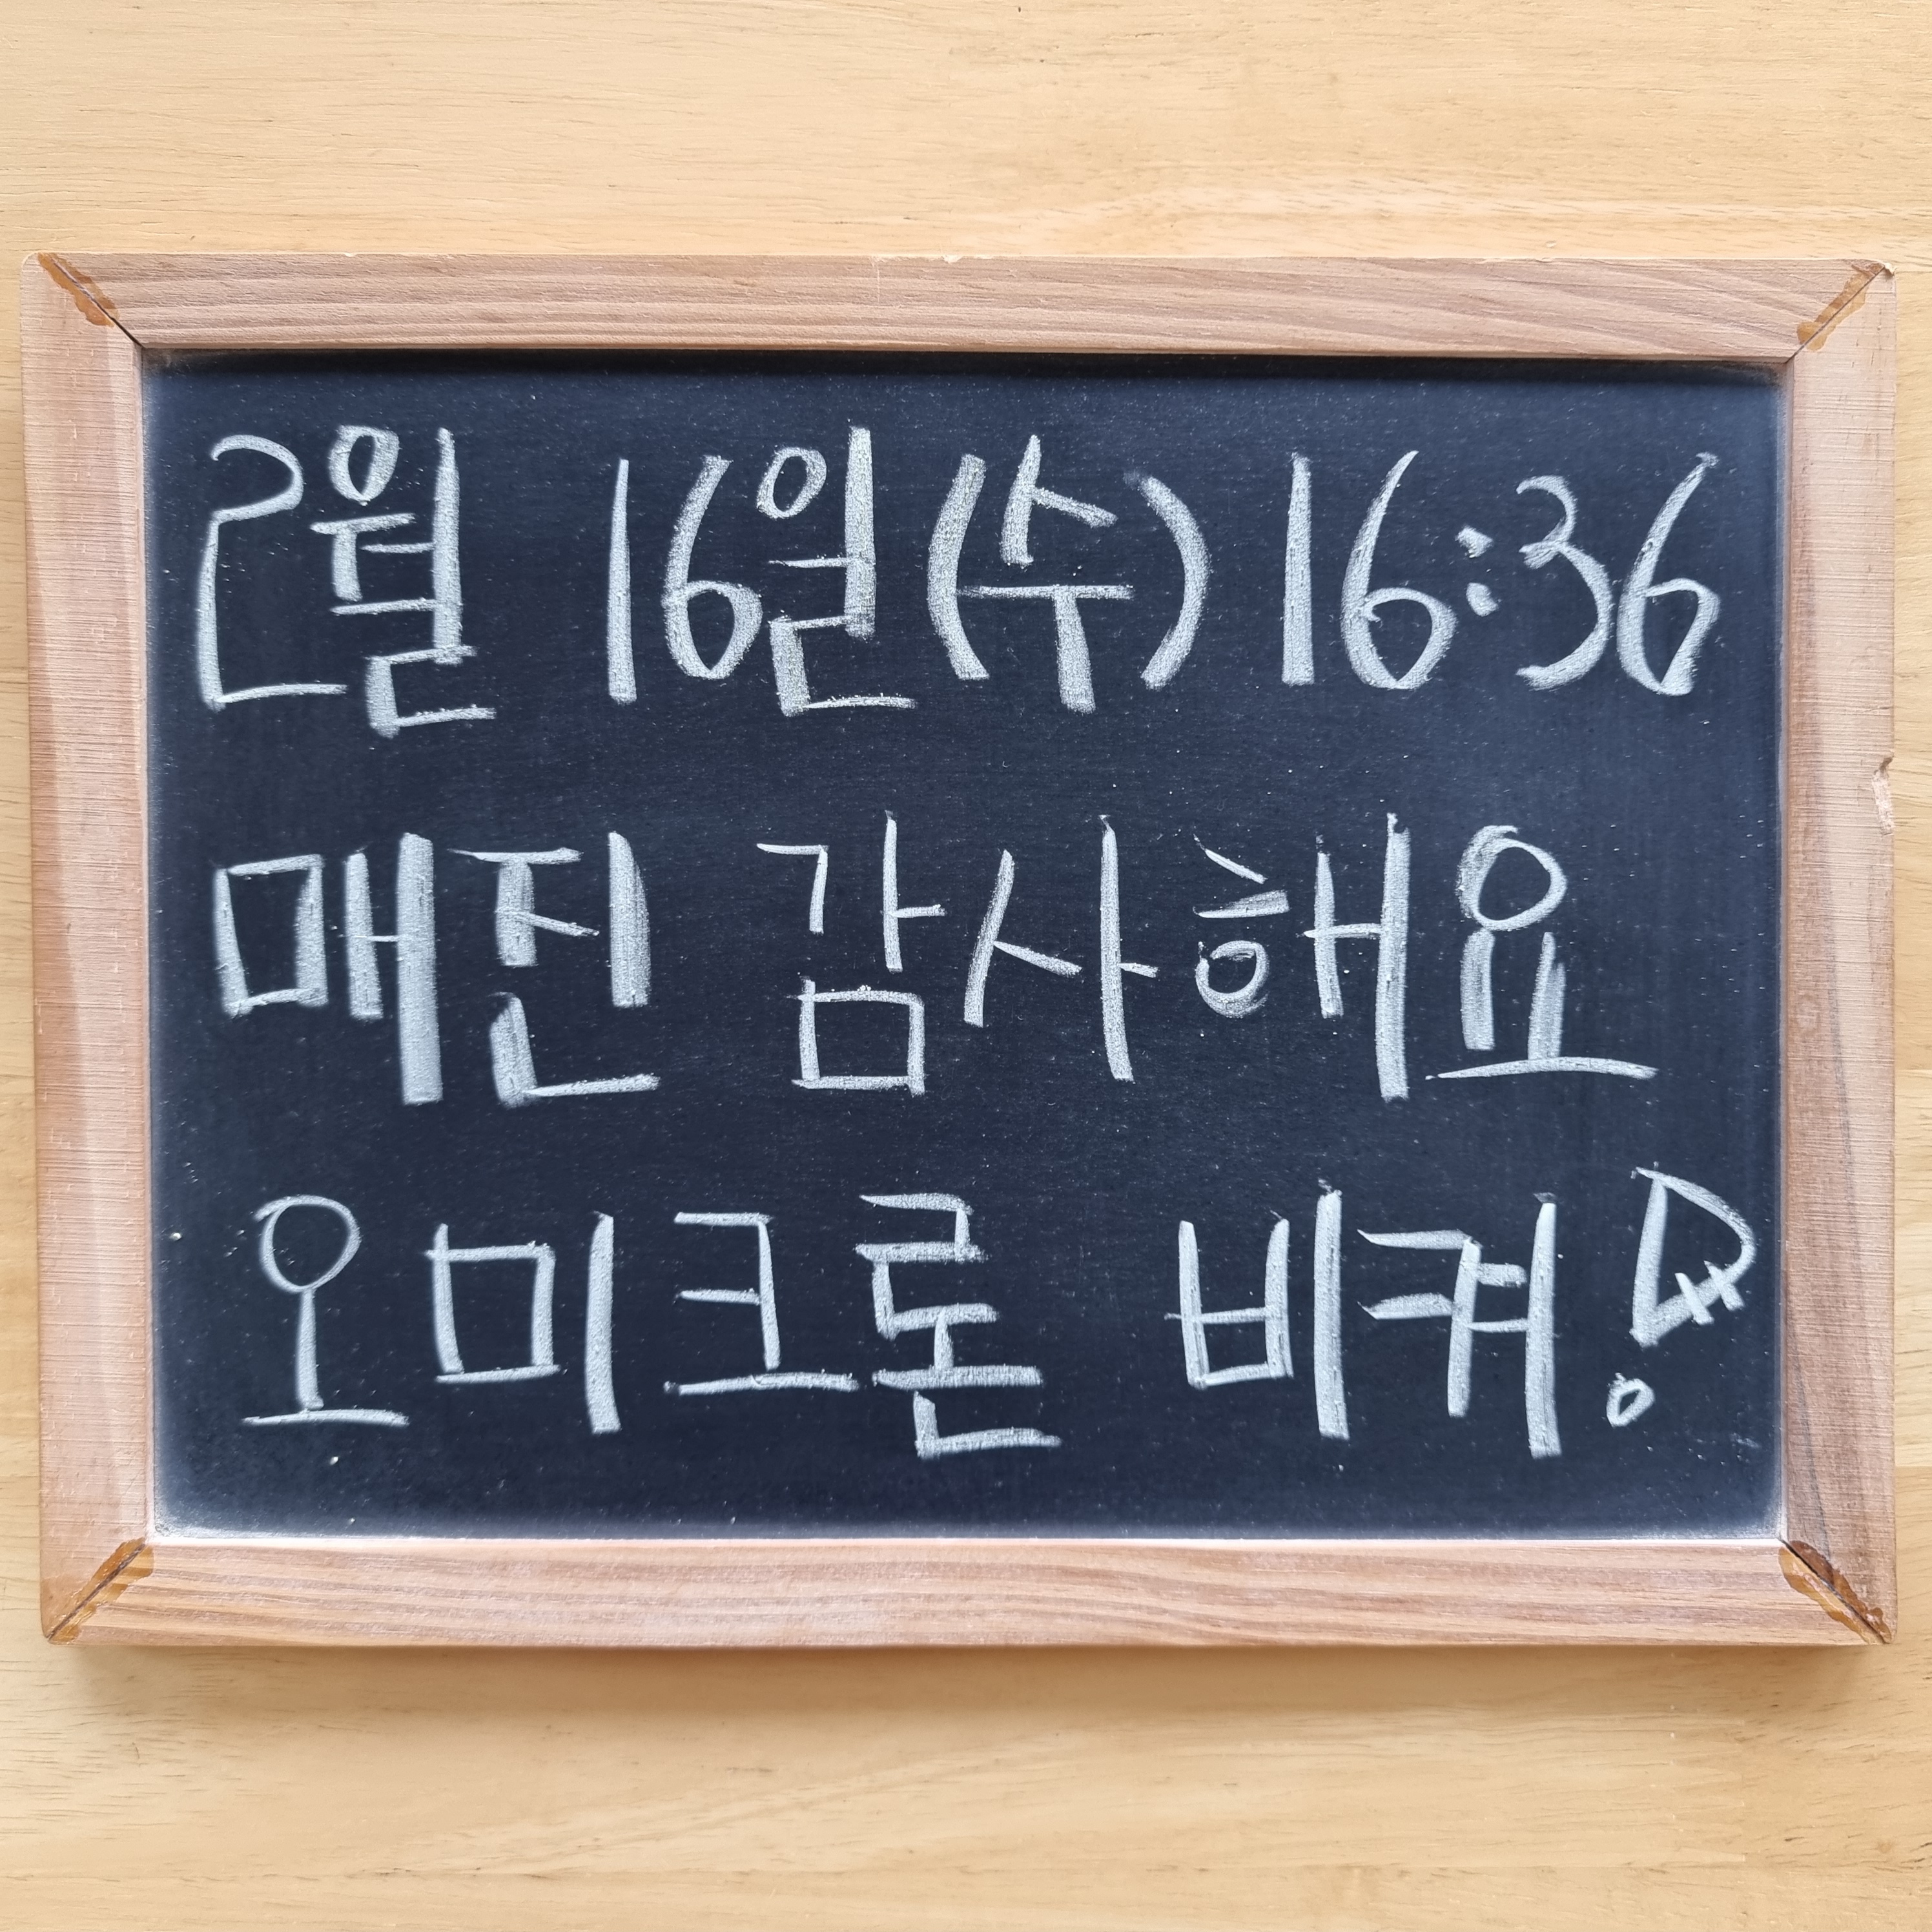 2월 16일(수) 16:36
매진 감사해요
오미크론 비켜!